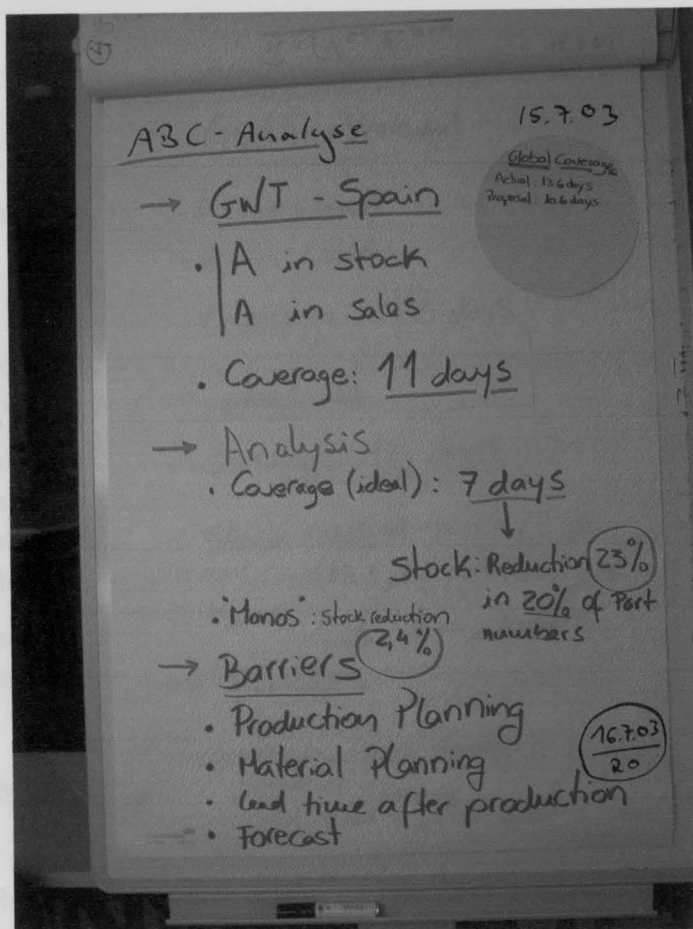 ABC-Analyse
15.7.03
Global Coverage
Actual: 13.6 days
Proposal: 10.6 days
→ GWT - Spain
• A in stock
A in sales
• Coverage: 11 days
→ Analysis
• Coverage (ideal): 7 days
↓
Stock: Reduction 23%
in 20% of Part
numbers
• "Monos": stock reduction
2,4%
→ Barriers
• Production Planning
• Material Planning
• lead time after production
• Forecast
16.7.03
20